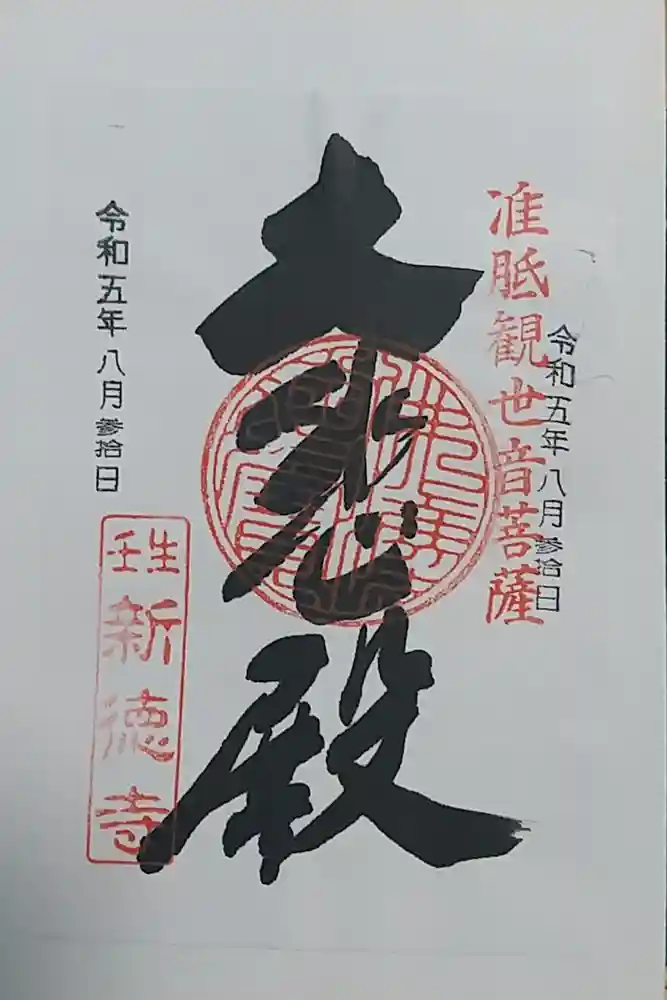 令和五年八月參拾日
准胝観世音菩薩
大悲殿
令和五年八月參拾日
壬生
新徳寺